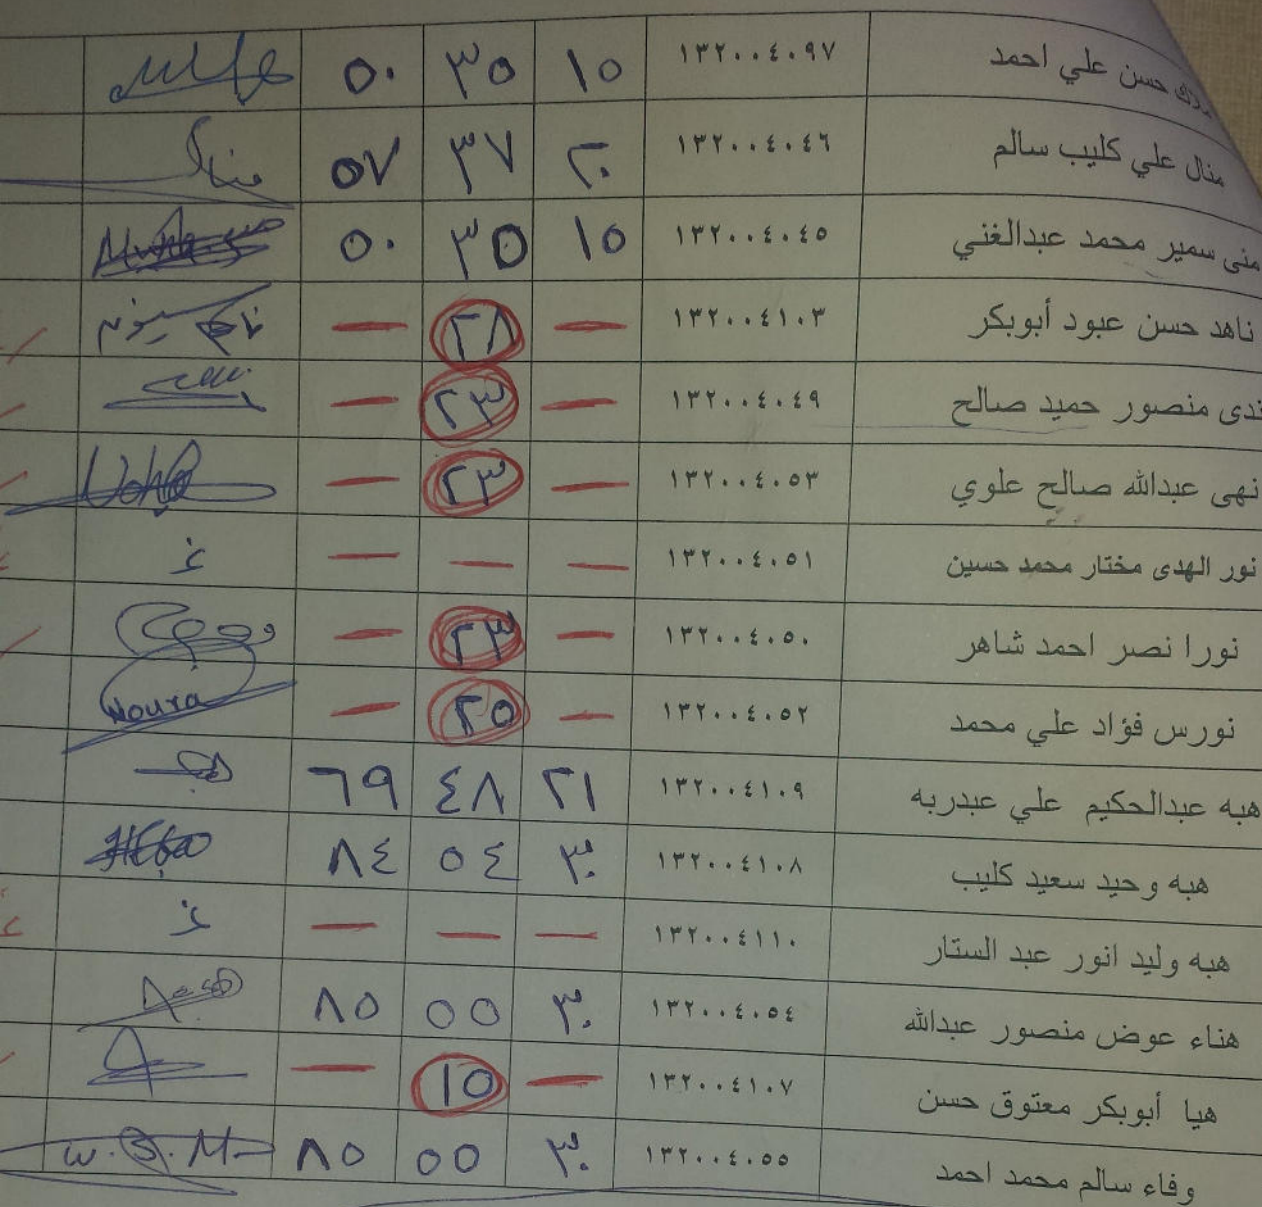 ملاك حسن علي احمد ١٣٢٠٠٤٠٩٧ ١٥ ٣٥ ٥٠
منال علي كليب سالم ١٣٢٠٠٤٠٤٦ ٢٠ ٣٧ ٥٧ منال
منى سمير محمد عبدالغني ١٣٢٠٠٤٠٤٥ ١٥ ٣٥ ٥٠
ناهد حسن عبود أبوبكر ١٣٢٠٠٤١٠٣ — ٢٨ —
ندى منصور حميد صالح ١٣٢٠٠٤٠٤٩ — ٢٣ —
نهى عبدالله صالح علوي ١٣٢٠٠٤٠٥٣ — ٢٣ —
نور الهدى مختار محمد حسين ١٣٢٠٠٤٠٥١ — — — غ
نورا نصر احمد شاهر ١٣٢٠٠٤٠٥٠ — ٢٣ —
نورس فؤاد علي محمد ١٣٢٠٠٤٠٥٢ — ٢٥ — Noura
هبه عبدالحكيم علي عبدربه ١٣٢٠٠٤١٠٩ ٢١ ٤٨ ٦٩
هبه وحيد سعيد كليب ١٣٢٠٠٤١٠٨ ٣٠ ٥٤ ٨٤ Heba
هبه وليد انور عبد الستار ١٣٢٠٠٤١١٠ — — — غ
هناء عوض منصور عبدالله ١٣٢٠٠٤٠٥٤ ٣٠ ٥٥ ٨٥
هيا أبوبكر معتوق حسن ١٣٢٠٠٤١٠٧ — ١٥ —
وفاء سالم محمد احمد ١٣٢٠٠٤٠٥٥ ٣٠ ٥٥ ٨٥ W.S.M